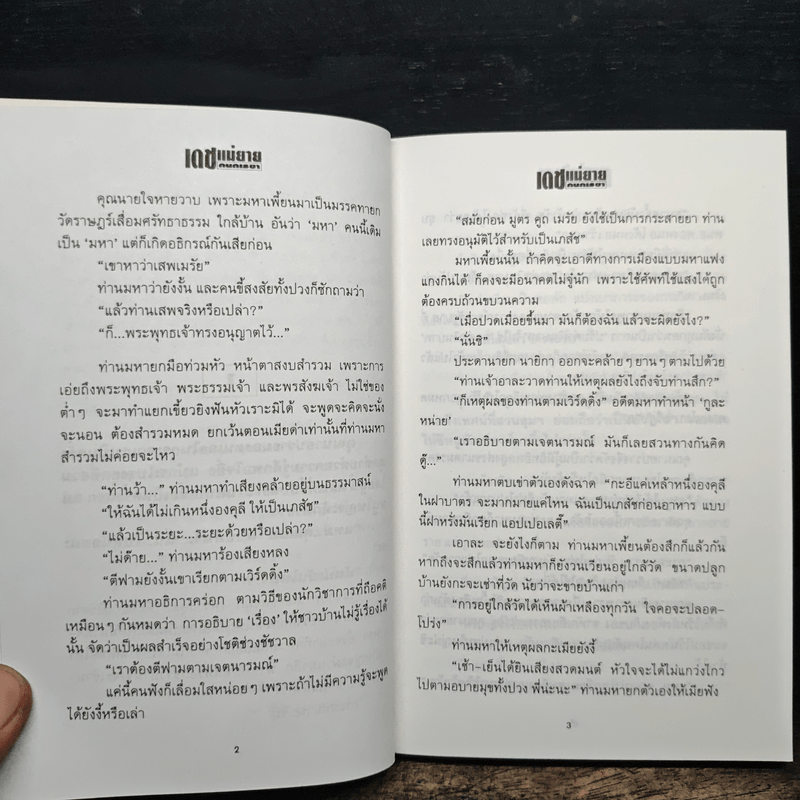 เดชแม่ยาย
คุณนายใจหายวาบ เพราะมหาเพี้ยนมาเป็นมรรคทายก
วัดราษฎร์เสื่อมศรัทธาธรรม ใกล้บ้าน อันว่า ‘มหา’ คนนี้เดิม
เป็น ‘มหา’ แต่ก็เกิดอธิกรณ์กันเสียก่อน
“เขาหาว่าเสพเมรัย”
ท่านมหาว่ายังงั้น และคนขี้สงสัยทั้งปวงก็ซักถามว่า
“แล้วท่านเสพจริงหรือเปล่า?”
“ก็...พระพุทธเจ้าทรงอนุญาตไว้...”
ท่านมหายกมือท่วมหัว หน้าตาสงบสำรวม เพราะการ
เอ่ยถึงพระพุทธเจ้า พระธรรมเจ้า และพรสังฆเจ้า ไม่ใช่ของ
ต่ำๆ จะมาทำแยกเขี้ยวยิงฟันหัวเราะมิได้ จะพูดจะคิดจะนั่ง
จะนอน ต้องสำรวมหมด ยกเว้นตอนเมียด่าเท่านั้นที่ท่านมหา
สำรวมไม่ค่อยจะไหว
“ท่านว้า...” ท่านมหาทำเสียงคล้ายอยู่บนธรรมาสน์
“ให้ฉันได้ไม่เกินหนึ่งองคุลี ให้เป็นเภสัช”
“แล้วเป็นระยะ...ระยะด้วยหรือเปล่า?”
“ไม่ด๊าย...” ท่านมหาร้องเสียงหลง
“ตีฟามยังงั้นเขาเรียกตามเวิร์ดดิ้ง”
ท่านมหาอธิการคร่อก ตามวิธีของนักวิชาการที่ถือคติ
เหมือนๆ กันหมดว่า การอธิบาย ‘เรื่อง’ ให้ชาวบ้านไม่รู้เรื่องได้
นั้น จัดว่าเป็นผลสำเร็จอย่างโชติช่วงชัชวาล
“เราต้องตีฟามตามเจตนารมณ์”
แค่นี้คนฟังก็เลื่อมใสหน่อยๆ เพราะถ้าไม่มีความรู้จะพูด
ได้ยังงี้หรือเล่า
2
เดชแม่ยาย
“สมัยก่อน มูตร คูถ เมรัย ยังใช้เป็นการกระสายยา ท่าน
เลยทรงอนุมัติไว้สำหรับเป็นเภสัช”
มหาเพี้ยนนั้น ถ้าคิดจะเอาดีทางการเมืองแบบมหาแฟง
แกงกินได้ ก็คงจะมีอนาคตไม่จู๋นัก เพราะใช้ศัพท์ใช้แสงได้ถูก
ต้องครบถ้วนขบวนความ
“เมื่อปวดเมื่อยขึ้นมา มันก็ต้องฉัน แล้วจะผิดยังไง?”
“นั่นซิ”
ประดานายก นายิกา ออกจะคล้ายๆ ยานๆ ตามไปด้วย
“ท่านเจ้าอาละวาดท่านให้เหตุผลยังไงถึงจับท่านสึก?”
“ก็เหตุผลของท่านตามเวิร์ดดิ้ง” อดีตมหาทำหน้า ‘กูละ
หน่าย’
“เราอธิบายตามเจตนารมณ์ มันก็เลยสวนทางกันคิด
ดู๊...”
ท่านมหาตบเข่าตัวเองดังฉาด “กะอีแค่เหล้าหนึ่งองคุลี
ในฝาบาตร จะมากมายแค่ไหน ฉันเป็นเภสัชก่อนอาหาร แบบ
นี้ฝาหรั่งมันเรียก แอปเปอเลตี๊”
เอาละ จะยังไงก็ตาม ท่านมหาเพี้ยนต้องสึกก็แล้วกัน
หากถึงจะสึกแล้วท่านมหาก็ยังวนเวียนอยู่ใกล้วัด ขนาดปลูก
บ้านยังกะจะเช่าที่วัด นัยว่าจะขายบ้านเก่า
“การอยู่ใกล้วัดได้เห็นผ้าเหลืองทุกวัน ใจคอจะปลอด-
โปร่ง”
ท่านมหาให้เหตุผลกะเมียยังงี้
“เช้า-เย็นได้ยินเสียงสวดมนต์ หัวใจจะได้ไม่แกว่งไกว
ไปตามอบายมุขทั้งปวง พี่น่ะนะ” ท่านมหายกตัวเองให้เมียฟัง
3